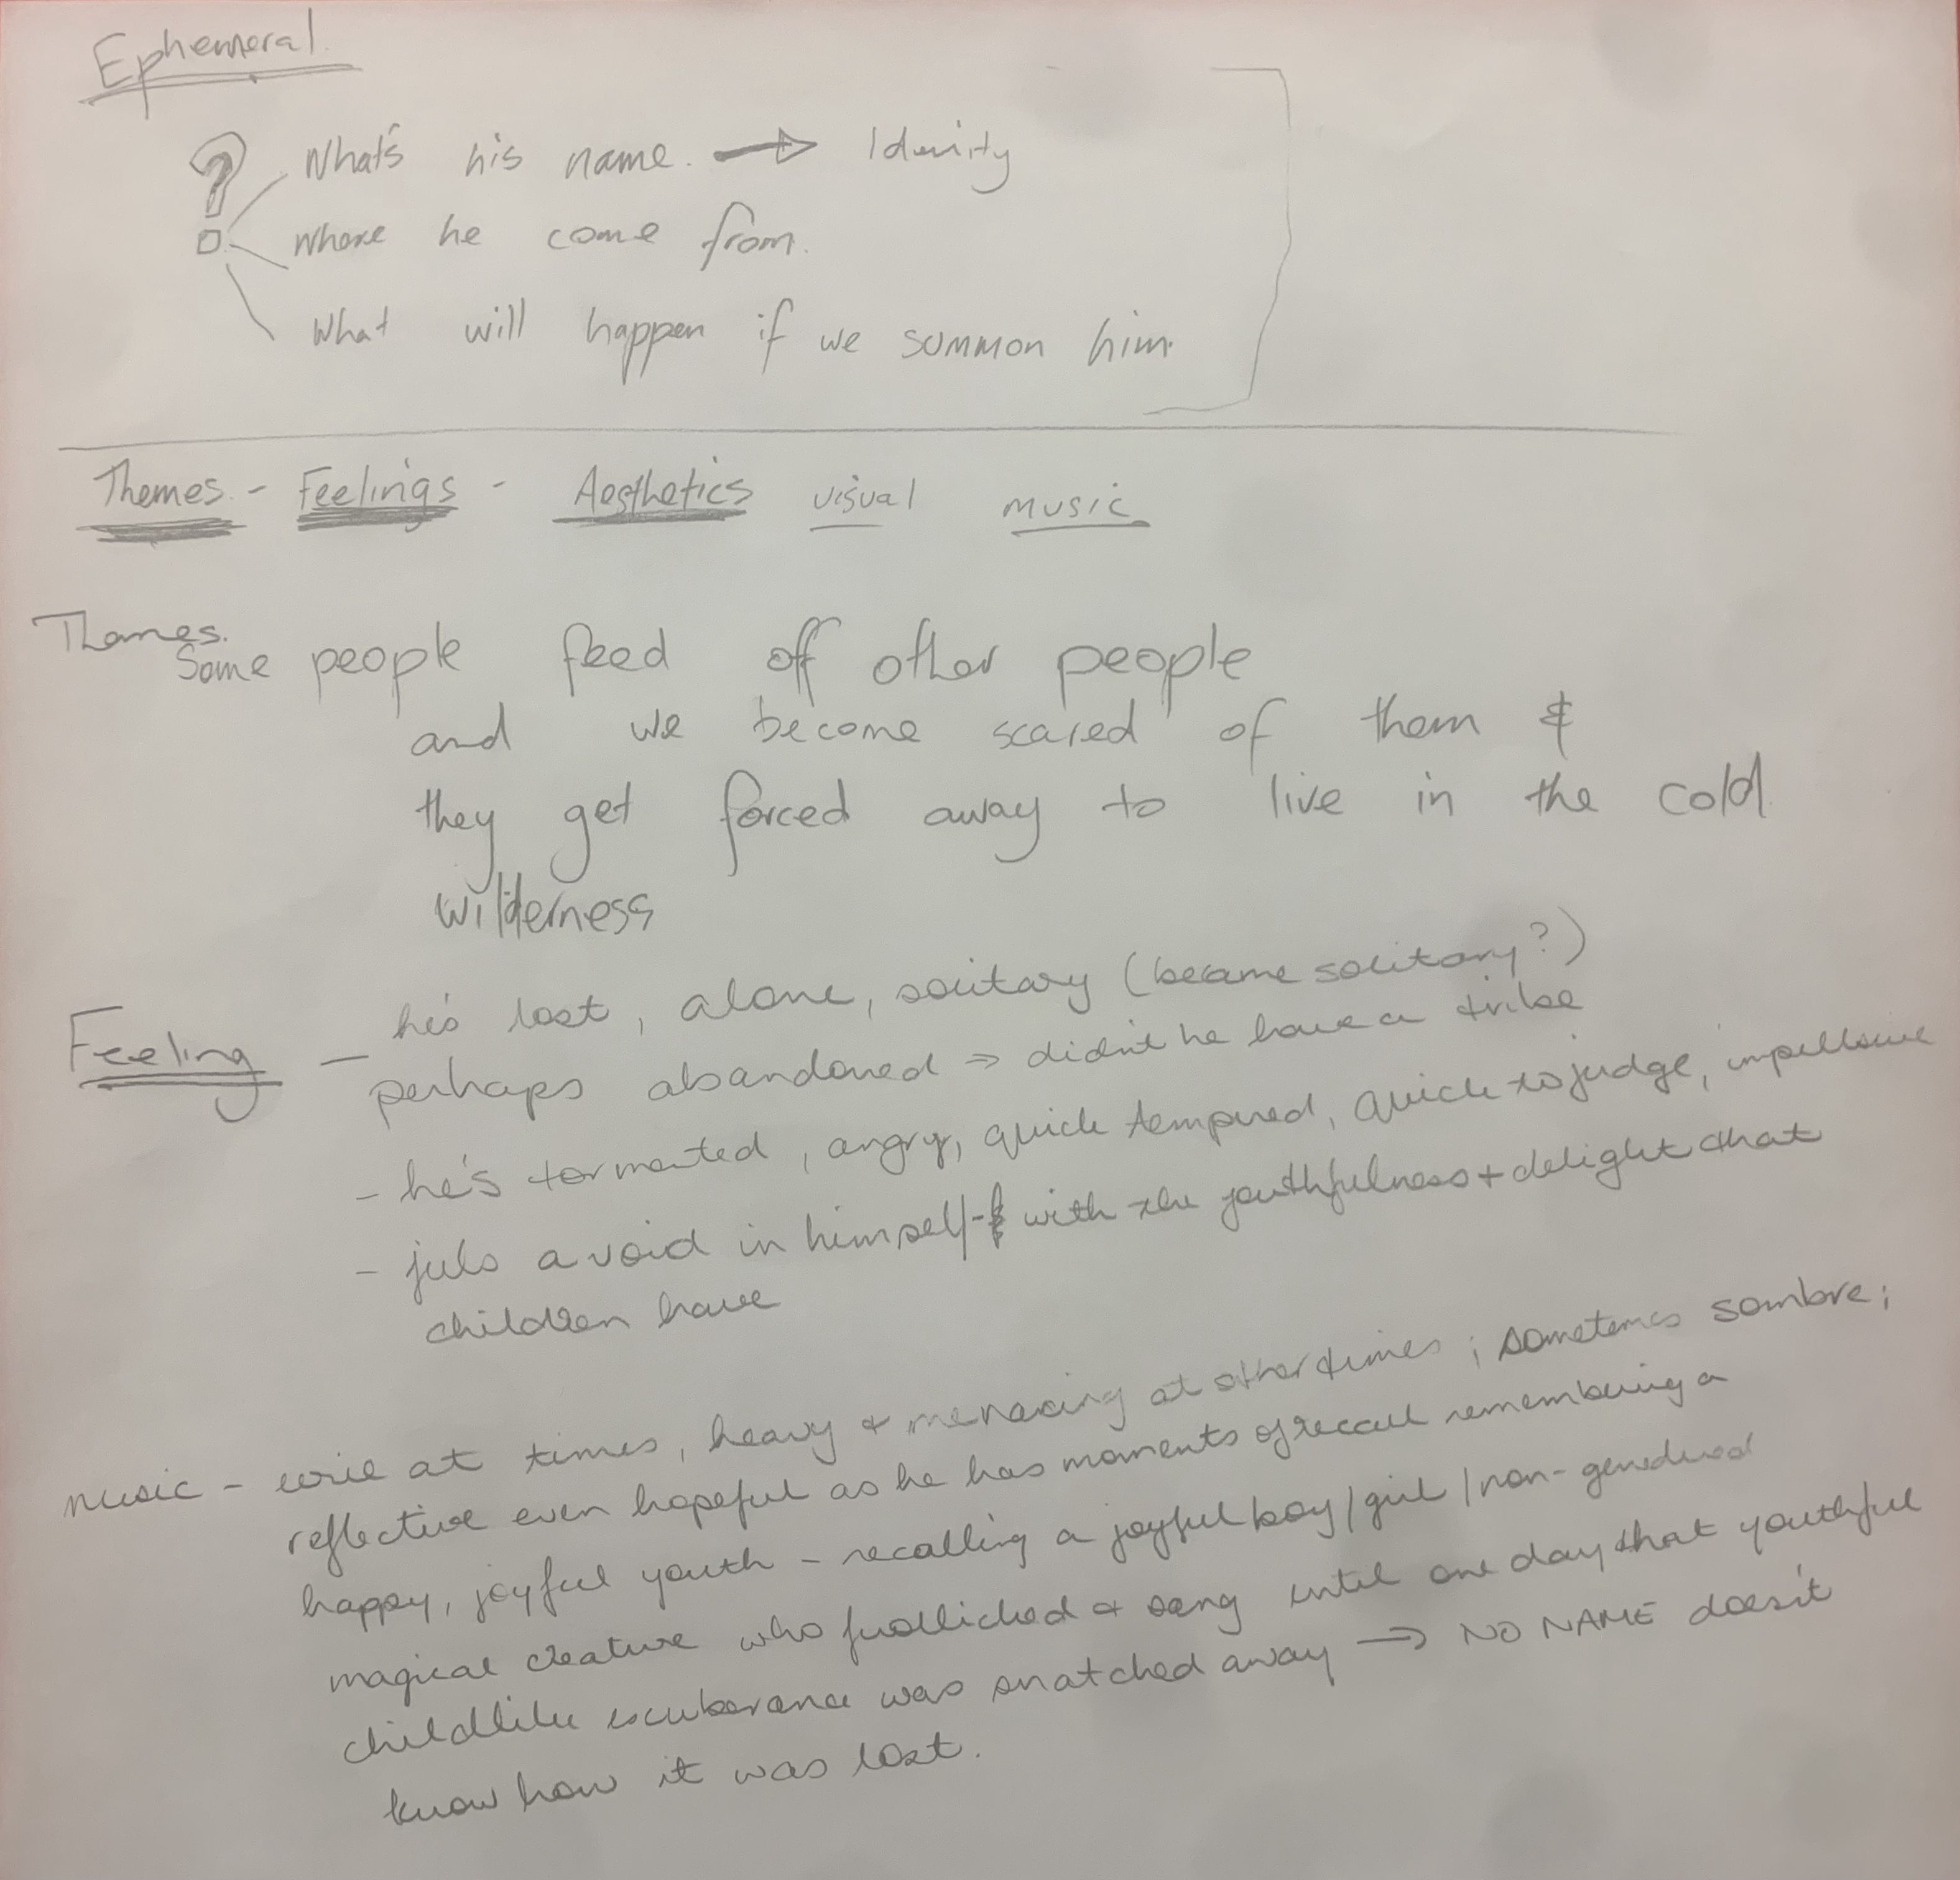 Ephemeral.
? What's his name. → Idenity
where he come from.
What will happen if we summon him.
Themes - Feelings - Aesthetics visual music
Themes.
Some people feed off other people
and we become scared of them &
they get forced away to live in the cold
wilderness
Feeling - he's lost, alone, solitary (became solitary?)
perhaps abandoned ⇒ didn't he have a tribe
- he's tormented, angry, quick tempured, quick to judge, impulsive
- feels a void in himself - with the youthfulness + delight that
children have
music - eerie at times, heavy & menacing at other times; sometimes sombre;
reflective even hopeful as he has moments of recall remembering a
happy, joyful youth - recalling a joyful boy/girl/non-gendered
magical creature who frollicked & sang until one day that youthful
childlike exuberance was snatched away → NO NAME doesn't
know how it was lost.